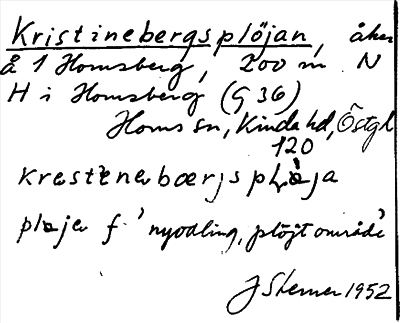 Kristinebergsplöjan, åker
å 1 Homsberg, 200 m N
H i Homsberg (G 36)
Homs sn, Kinda hd, Östgl
120
krestenabærjspløja
pløja f. 'nyodling, plöjt område'
J Sterner 1952